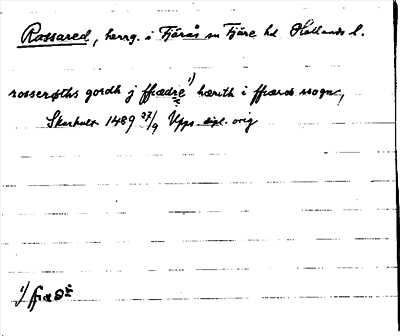 Rossared, herrg. i Fjärås sn Fjäre hd Hallands l.
rosserøths gordh j ffiædre 1) hærith i ffiærds sogn,
Skarhult 1489 27/9 Upps. dipl. orig
1) ffiæd